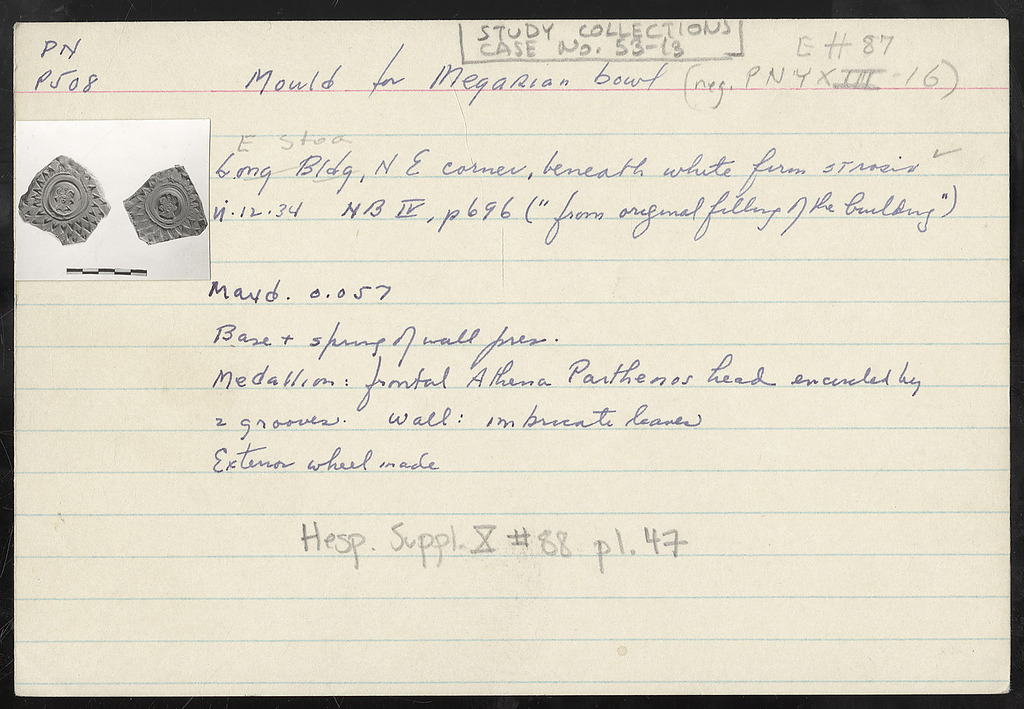 STUDY COLLECTIONS
CASE No. 53-13
PN
P508
E # 87
Mould for Megarian bowl (neg. PNYXIII-16)
E Stoa
Long Bldg, N E corner, beneath white firm strosis ✓
vi.12.34 NB IV, p696 ("from original filling of the building")
Max d. 0.057
Base + spring of wall pres.
Medallion: frontal Athena Parthenos head encircled by
2 grooves. Wall: imbricate leaves
Exterior wheel made
Hesp. Suppl. X # 88 pl. 47